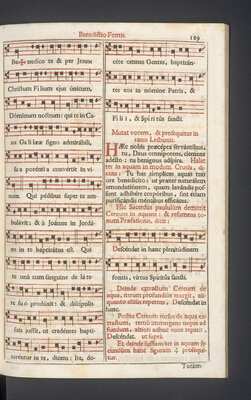 Benedictio Fontis.
189
Bene✠dico te & per Jesum
Christum Filium ejus únicum,
Dóminum nostrum: qui te in Ca-
na Galilææ signo admirábili,
sua poténtia convértit in vi-
num. Qui pédibus super te am-
bulávit; & à Joánne in Jordá-
ne in te baptizátus est. Qui
te una cum sánguine de láte-
re suo prodúxit: & discípulis
suis jussit, ut credéntes bapti-
zaréntur in te, dicens: Ite, do-
céte omnes Gentes, baptizán-
tes eos in nómine Patris, &
Fílii, & Spíritus sancti.
Mutat vocem, & prosequitur in
tono Lectionis.
Hæc nobis præcépta servántibus,
tu, Deus omnípotens, clemens
adésto: tu benígnus aspíra. Halat
ter in aquam in modum Crucis, di-
cens: Tu has símplices aquas tuo
ore benedícito: ut præter naturálem
emundatiónem, quam lavándis pos-
sunt adhibére corpóribus, sint étiam
purificándis méntibus efficáces.
Hic Sacerdos paululum demittit
Cereum in aquam: & resumens to-
num Præfationis, dicit:
Descéndat in hanc plenitúdinem
fontis, virtus Spíritus sancti.
Deinde extractum Cereum de
aqua, iterum profundius mergit, ali-
quanto altius repetens: Descéndat in
hanc.
Postea Cereum rursus de aqua ex-
tractum, tertio immergens usque ad
fundum, altiori adhuc voce repetit:
Descéndat. ut supra.
Et deinde sufflans ter in aquam se-
cundum hanc figuram
prosequi-
tur.
Totám-